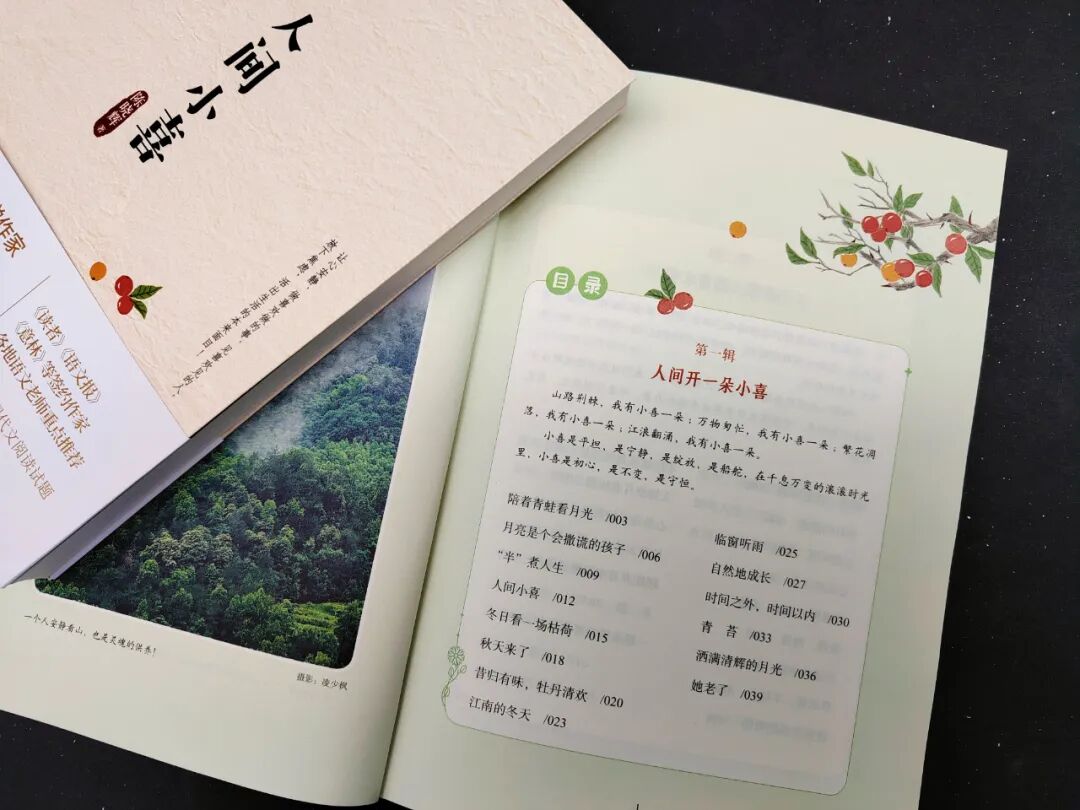 人间小喜
陈晓辉 著
让心安静，做喜欢做的事，见喜欢见的人，
放下焦虑，活出生活的本来面目！
作家
《读者》《语文报》
《意林》等签约作家
各地语文老师重点推荐
代文阅读试题
一个人安静看山，也是灵魂的供养！
摄影：凌少枫
目录
第一辑
人间开一朵小喜
山路荆棘，我有小喜一朵；万物匆忙，我有小喜一朵；繁花凋
落，我有小喜一朵；江浪翻涌，我有小喜一朵。
小喜是平坦，是宁静，是绽放，是船舵，在千息万变的滚滚时光
里，小喜是初心，是不变，是守恒。
陪着青蛙看月光 /003
月亮是个会撒谎的孩子 /006
“半”煮人生 /009
人间小喜 /012
冬日看一场枯荷 /015
秋天来了 /018
昔归有味，牡丹清欢 /020
江南的冬天 /023
临窗听雨 /025
自然地成长 /027
时间之外，时间以内 /030
青苔 /033
洒满清辉的月光 /036
她老了 /039
1